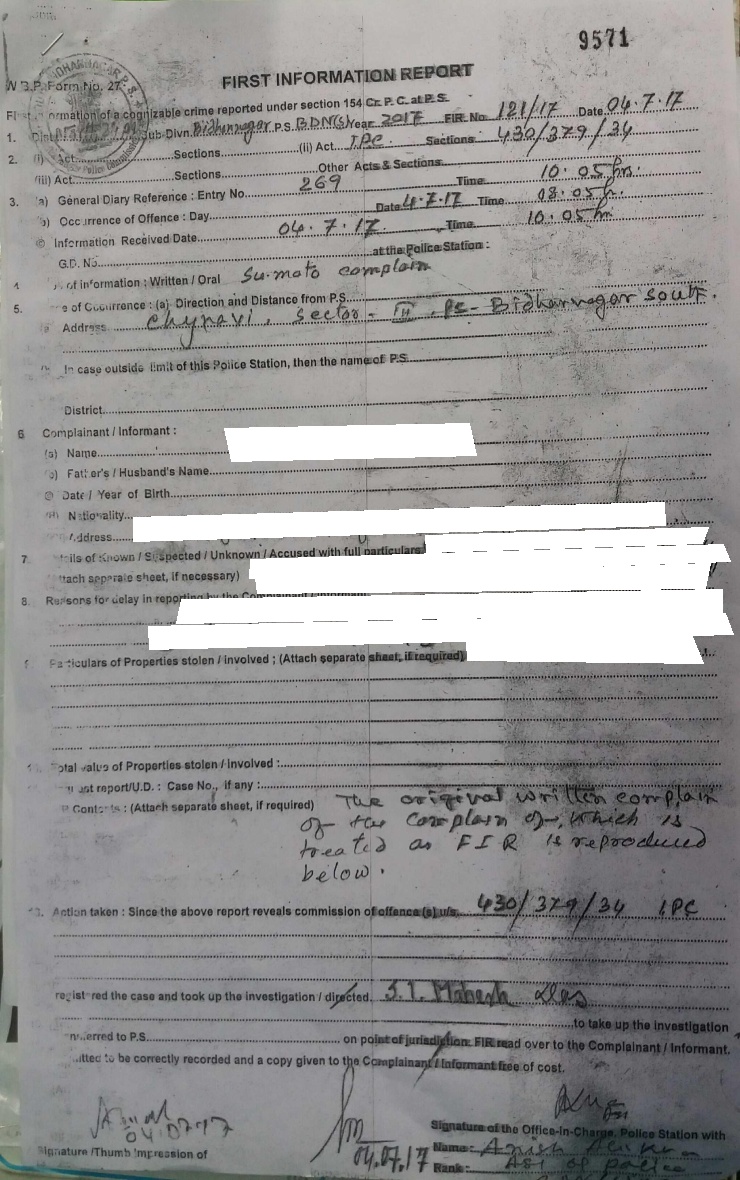 9571
FIRST INFORMATION REPORT
W B.P. Form No. 27
BIDHANNAGAR P.S.
Police Commissionerate
ormation of a cognizable crime reported under section 154 Cr. P. C. at P. S.
1. Sub-Divn. Bidhannagar P.S. BDN(S) Year 2017 FIR. No. 121/17 Date 04.7.17
2. (i) Act Sections (ii) Act IPC Sections 430/379/34
(iii) Act Sections Other Acts & Sections
3. (a) General Diary Reference : Entry No. 269 Time 10.05 hrs.
b) Occurrence of Offence : Day Date 4.7.17 Time 08.05
© Information Received Date 04.7.17 Time 10.05 hr
G.D. No. at the Police Station :
of information : Written / Oral Su.moto complain
5. e of Occurrence : (a) Direction and Distance from P.S.
Address Sector - III, PS - Bidhannagar South.
In case outside limit of this Police Station, then the name of P.S
District
6 Complainant / Informant :
(a) Name
Father's / Husband's Name
© Date / Year of Birth
Nationality
Address
7 ils of Known / Suspected / Unknown / Accused with full particulars
ttach seperate sheet, if necessary)
8. Reasons for delay in reporting by the Complainant / Informant
Particulars of Properties stolen / involved ; (Attach separate sheet, if required)
otal value of Properties stolen / Involved :
est report/U.D. : Case No., if any :
Contents : (Attach separate sheet, if required) The original written complain
of the complain of, which is
treated as FIR is reproduced
below.
Action taken : Since the above report reveals commission of offence (s) u/s. 430/379/34 IPC
registered the case and took up the investigation / directed. S.I. Mahesh Das
to take up the investigation
erred to P.S. on point of jurisdiction. FIR read over to the Complainant / Informant.
itted to be correctly recorded and a copy given to the Complainant / Informant free of cost.
04.07.17
04.07.17
Signature of the Office-in-Charge, Police Station with
Signature /Thumb Impression of
Name:
Rank: ASI of police